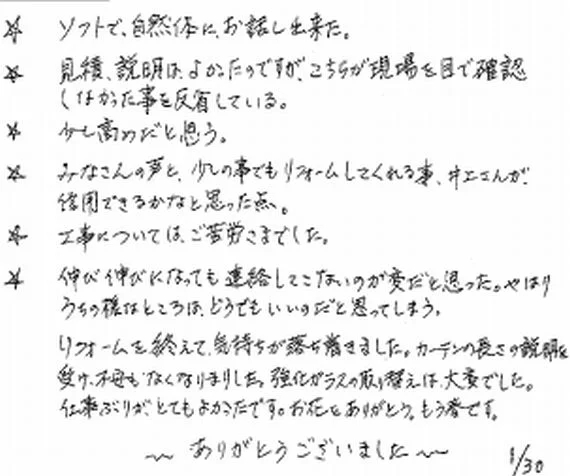 ☆ ソフトで、自然体に、お話し出来た。
☆ 見積、説明は、よかったのですが、こちらが現場を目で確認
しなかった事を反省している。
☆ 少し高めだと思う。
☆ みなさんの声と、少しの事でもリフォームしてくれる事、井エさんが、
信用できるかなと思った点。
☆ 工事については、ご苦労さまでした。
☆ 伸び伸びになっても連絡してこないのが変だと思った。やはり
うちの様なところは、どうでもいいのだと思ってしまう。
リフォームを終えて、気持ちが落ち着きました。カーテンの長さの説明を
受け、なくなりました。強化ガラスの取り替えは、大変でした。
仕事ぶりが、とてもよかったです。お花とありがとう。もう春です。
～ ありがとうございました ～
1/30